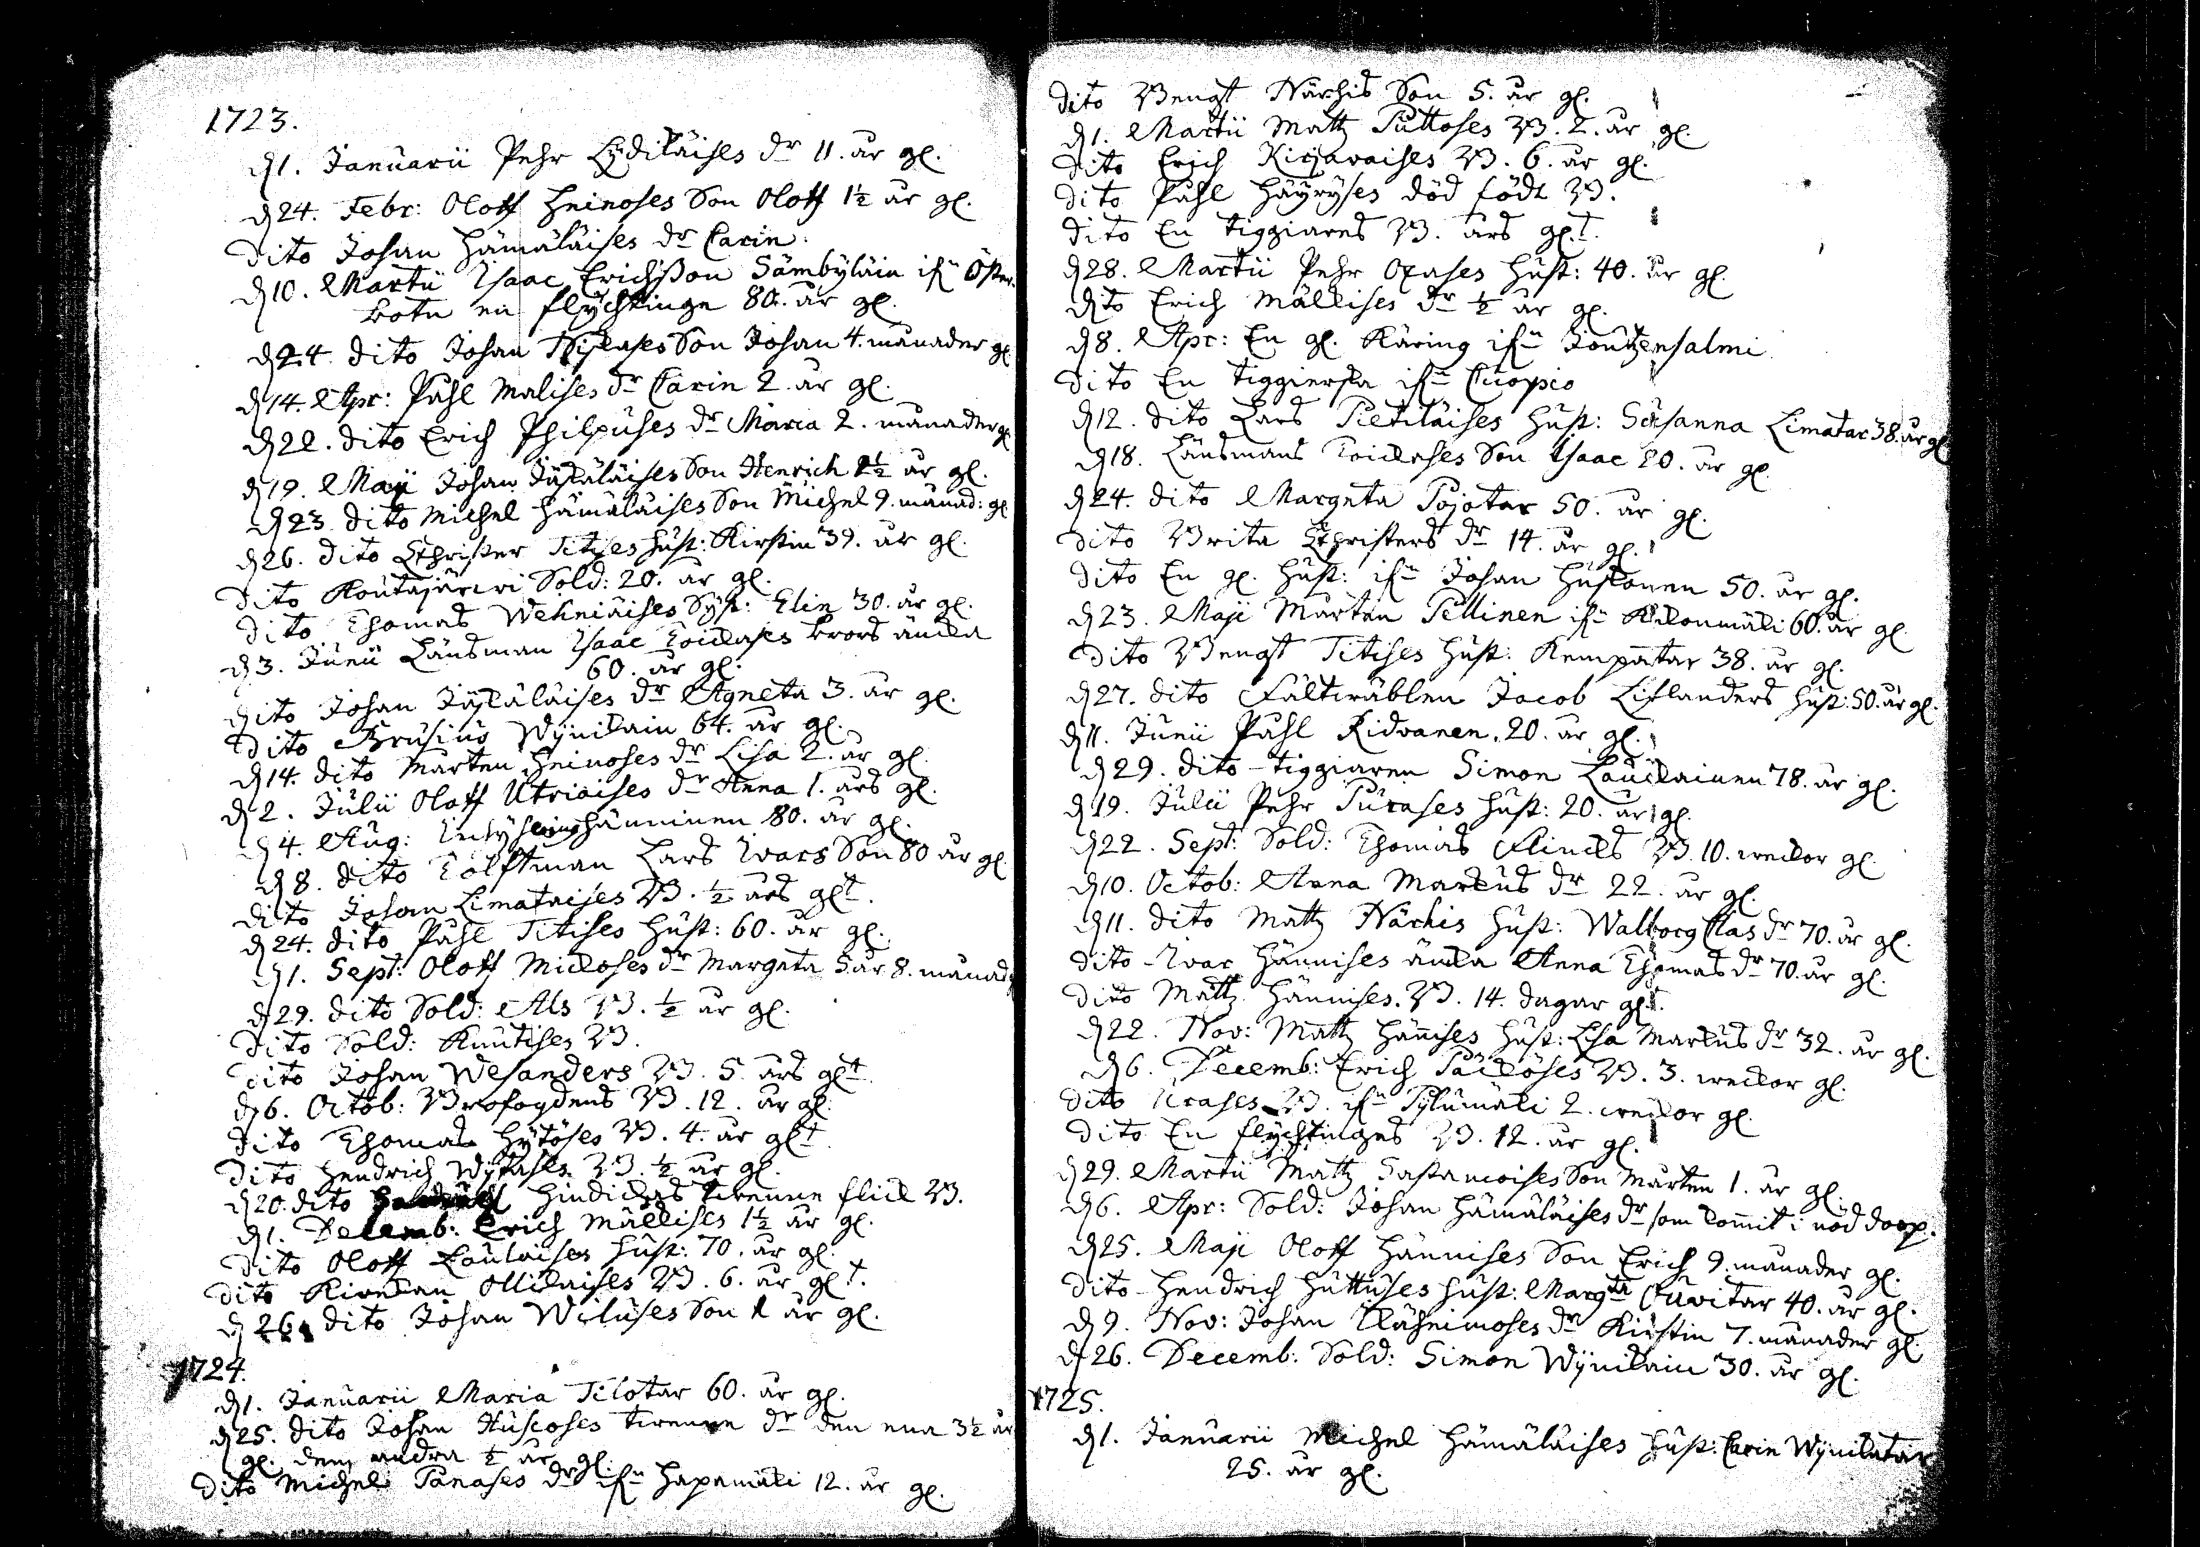 1723.
d 1. Januarii Pehr Lydikäises dr 11. år gl.
d 24. Febr: Oloff Heinoses Son Oloff 1½ år gl.
Dito Johan Hämäläises dr Carin.
d 10. Martii Isaac Erichsson Sämbyläin ifn Öster-
botn en flychtinge 80. år gl.
d 24. dito Johan Son Johan 4. månader gl.
d 14. Apr: Påhl Malises dr Carin 2. år gl.
d 22. dito Erich Philpuses dr Maria 2. månader gl.
d 19. Maji Johan Jäskäläises Son Henrich 2½ år gl.
d 23. dito Michel Hämäläises Son Michel 9. månad: gl.
d 26. dito Christer Titises Hust: Kirstin 39. år gl.
Dito Koutajärwi Sold: 20. år gl.
Dito Thomas Wehniäises Syst: Elin 30. år gl.
d 3. Junii Länsman Isaac Toickases brors änka
60. år gl.
Dito Johan Jäskäläises dr Agneta 3. år gl.
Dito Brusius Wynikain 64. år gl.
d 14. dito Mårten Heinoses dr Lisa 2. år gl.
d 2. Julii Oloff Utriaises dr Anna 1. års gl.
d 4. Aug: Hänninen 80. år gl.
d 8. dito Tolfftman Lars Ivars Son 80 år gl.
dito Johan Limataises B. ½ års glt.
d 24. dito Påhl Titises Hust: 60. år gl.
d 1. Sept: Oloff Mickoses dr Margeta 5 år 8. månad:
d 29. dito Sold: Als B. ½ år gl.
Dito Sold: Knutises B.
Dito Johan Wesanders B. 5. års glt.
d 6. Octob: Brofogdens B. 12. år gl.
Dito Thomas Hytöses B. 4. år glt.
Dito Hendrich Wijkases B. ½ år gl.
d 20. dito Hindichas twenne flick B.
d 1. Decemb: Erich Mällises 1½ år gl.
Dito Oloff Laulaises Hust: 70. år gl.
Dito Ollikaises B. 6. år glt.
d 26. dito Johan Wiluses Son 1 år gl.
1724.
d 1. Januarii Maria Tilotar 60. år gl.
d 25. dito Johan Huscoses twenne dr den ena 3½ år
gl. den andra ½ år gl.
Dito Michel Panases dr ifn Hapamäki 12. år gl.
Dito Bengt Närhis Son 5. år gl.
d 1. Martii Matz Puttoses B. 2. år gl.
Dito Erich Kirjavaises B. 6. år gl.
Dito Påhl Häyryses död födt B.
Dito En tiggiares B. års gl.t.
d 28. Martii Pehr Oxases Hust: 40. år gl.
Dito Erich Mällises dr ½ år gl.
d 8. Apr: En gl. Käring ifn Joutzensalmi
Dito En tiggierska ifn Cuopio
d 12. dito Lars Pietiläises Hust: Susanna Limatar 38. år gl.
d 18. Länsmans Toickases Son Isaac 20. år gl.
d 24. dito Margeta Pojotar 50. år gl.
Dito Brita Christers dr 14. år gl.
Dito En gl. Hust: ifn Johan Huskonen 50. år gl.
d 23. Maji Mårten Pellinen ifn Kekonmäki 60. år gl.
Dito Bengt Titises Hust: Kempatar 38. år gl.
d 27. dito Fältwäblen Jacob Liflanders Hust: 50. år gl.
d 11. Junii Påhl Kidvanen 20. år gl.
d 29. dito tiggiaren Simon Lauckainen 78. år gl.
d 19. Julii Pehr Purases Hust: 20. år gl.
d 22. Sept: Sold: Thomas Flincks B. 10. weckor gl.
d 10. Octob: Anna Markus dr 22. år gl.
d 11. dito Matz Närhis Hust: Walborg Clas dr 70. år gl.
Dito Ivar Hännises änka Anna Thomas dr 70. år gl.
Dito Matz Hännises B. 14. dagar glt.
d 22. Nov: Matz Hännises Hust: Lisa Markus dr 32. år gl.
d 6. Decemb: Erich Päcköses B. 3. weckor gl.
Dito Urases B. ifn Pylumäki 2. weckor gl.
Dito En flychtinges B. 12. år gl.
d 29. Martii Matz Sastamoises Son Mårten 1. år gl.
d 6. Apr: Sold: Johan Hämäläises dr som kommit i nöd doop.
d 25. Maji Oloff Hännises Son Erich 9. månader gl.
Dito Hendrich Huttuses Hust: Margta Cuvitar 40. år gl.
d 9. Nov: Johan Ulähnimoses dr Kirstin 7. månader gl.
d 26. Decemb: Sold: Simon Wynikain 30. år gl.
1725.
d 1. Januarii Michel Hämäläises Hust: Carin Wynikatar
25. år gl.